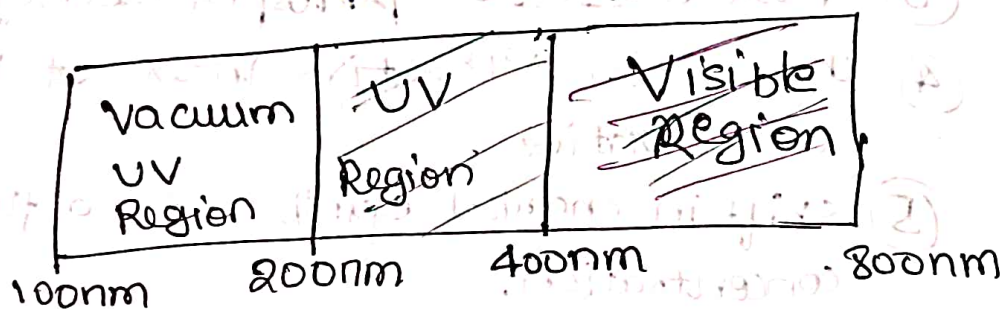 Vacuum
UV
Region
UV
Region
Visible
Region
100nm
200nm
400nm
800nm